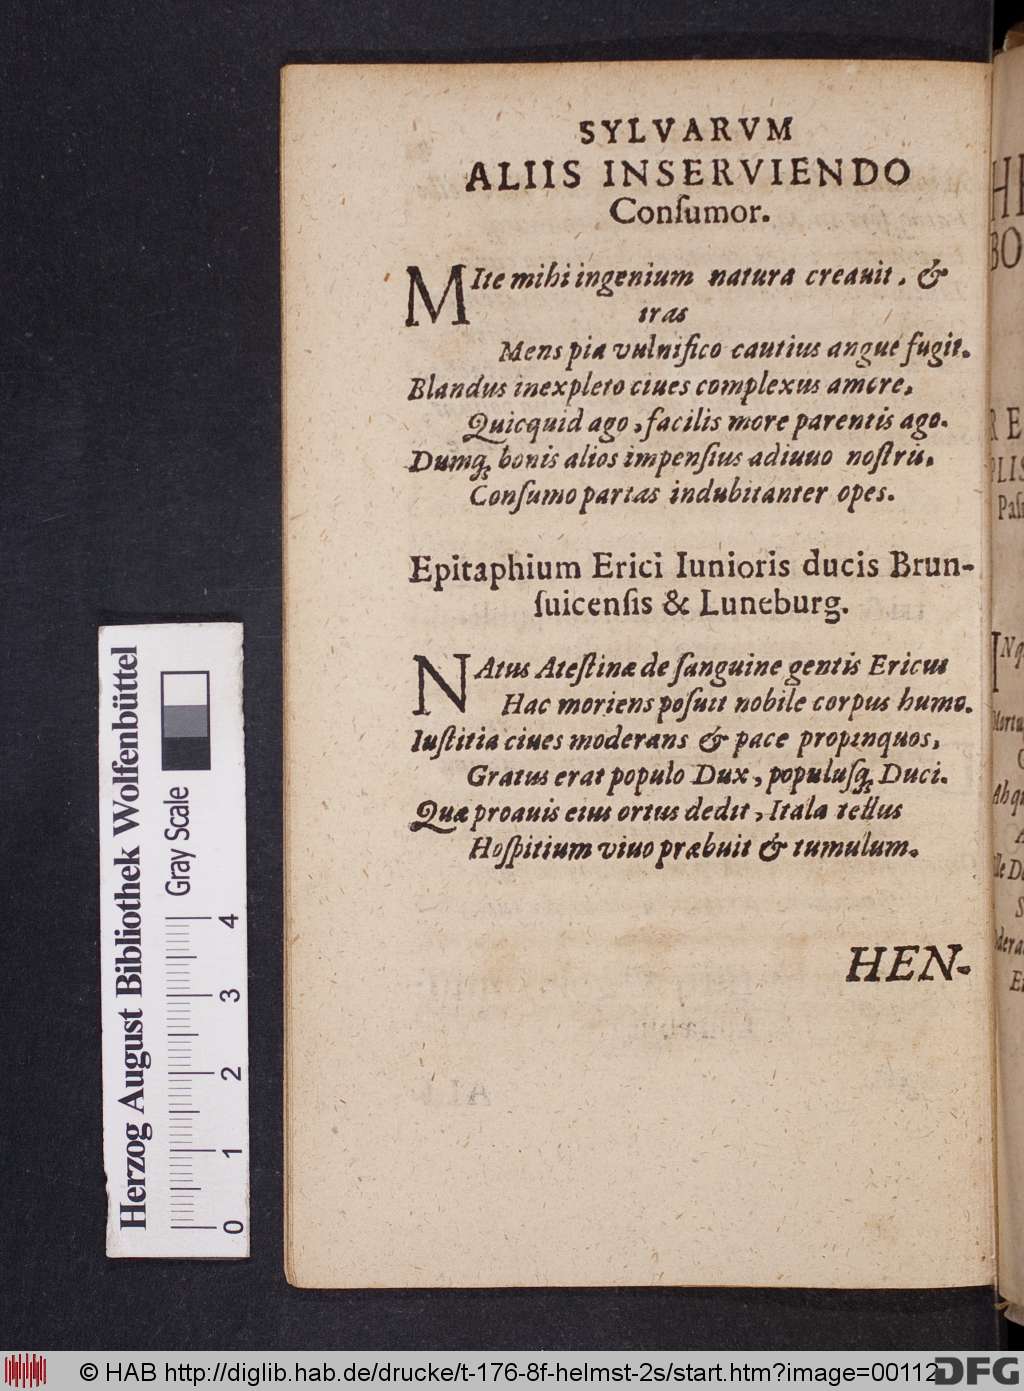 SYLVARVM
ALIIS INSERVIENDO
Conſumor.
MIte mihi ingenium natura creauit, &
iras
Mens pia vulnifico cautius angue fugit.
Blandus inexpleto ciues complexus amore,
Quicquid ago, facilis more parentis ago.
Dumq́; bonis alios impenſius adiuuo noſtris,
Conſumo partas indubitanter opes.
Epitaphium Erici Iunioris ducis Brun-
ſuicenſis & Luneburg.
NAtus Ateſtinæ de ſanguine gentis Ericus
Hac moriens poſuit nobile corpus humo.
Iuſtitia ciues moderans & pace propinquos,
Gratus erat populo Dux, populuſq́; Duci.
Quæ proauis eius ortus dedit, Itala tellus
Hoſpitium viuo præbuit & tumulum.
HEN-
Herzog August Bibliothek Wolfenbüttel
Gray Scale
0 1 2 3 4
© HAB http://diglib.hab.de/drucke/t-176-8f-helmst-2s/start.htm?image=00112
DFG